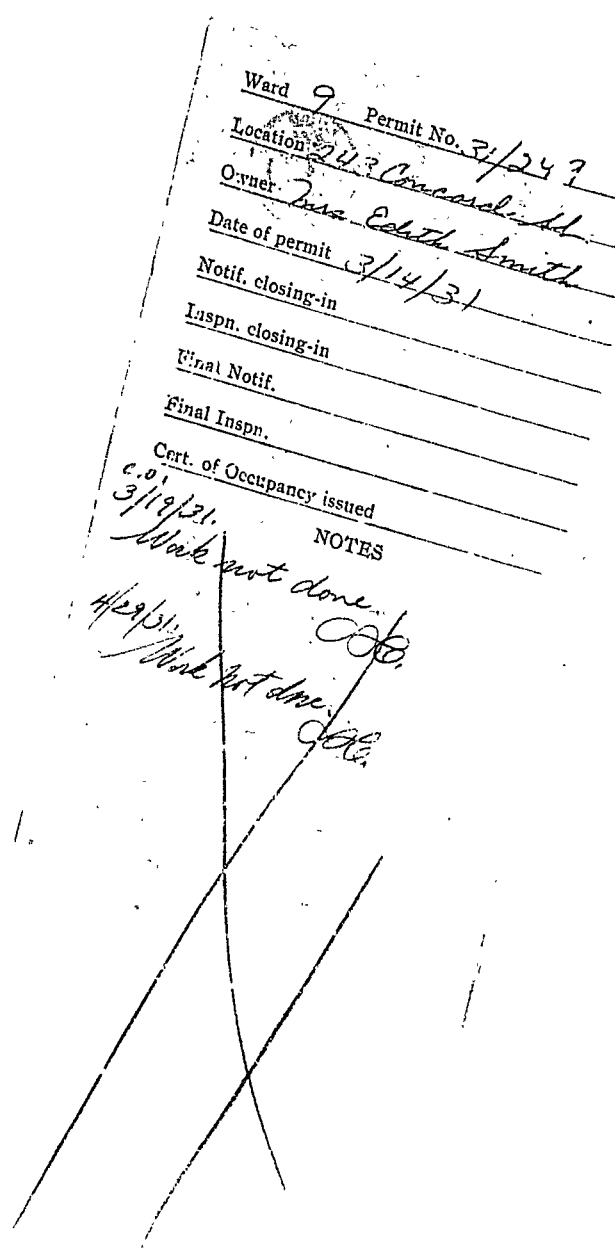 Ward 9 Permit No. 31/243
Location 243 Concord St.
Owner Mrs Edith Smith
Date of permit 3/14/31
Notif. closing-in
Inspn. closing-in
Final Notif.
Final Inspn.
Cert. of Occupancy issued
NOTES
3/19/31.
Work not done.
4/29/31.
Work not done.